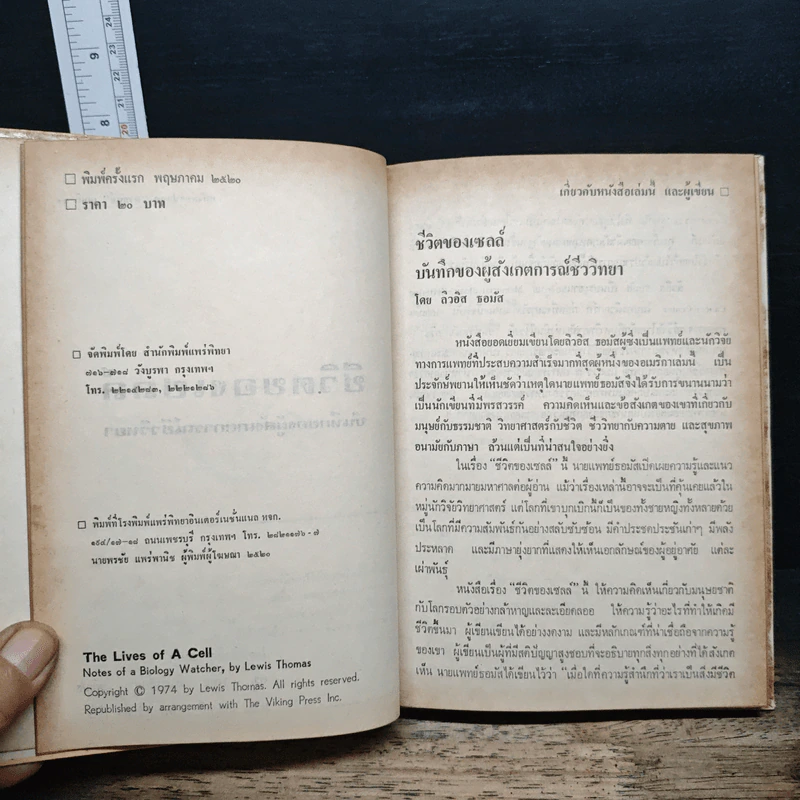 9
8
24
23
22
21
20
□ พิมพ์ครั้งแรก พฤษภาคม ๒๕๒๐
□ ราคา ๒๐ บาท
□ จัดพิมพ์โดย สำนักพิมพ์แพร่พิทยา
๗๑๖-๗๑๘ วังบูรพา กรุงเทพฯ
โทร. ๒๒๑๔๒๘๓, ๒๒๒๑๒๘๖
□ พิมพ์ที่โรงพิมพ์แพร่พิทยาอินเตอร์เนชั่นแนล หจก.
๑๙๔/๑๗-๑๘ ถนนเพชรบุรี กรุงเทพฯ โทร. ๒๘๒๑๑๗๖-๗
นายพรชัย แพร่พานิช ผู้พิมพ์ผู้โฆษณา ๒๕๒๐
The Lives of A Cell
Notes of a Biology Watcher, by Lewis Thomas
Copyright © 1974 by Lewis Thomas. All rights reserved.
Republished by arrangement with The Viking Press Inc.
เกี่ยวกับหนังสือเล่มนี้ และผู้เขียน □
ชีวิตของเซลล์
บันทึกของผู้สังเกตการณ์ชีววิทยา
โดย ลิวอิส ธอมัส
หนังสือยอดเยี่ยมเขียนโดยลิวอิส ธอมัสผู้ซึ่งเป็นแพทย์และนักวิจัย
ทางการแพทย์ที่ประสบความสำเร็จมากที่สุดผู้หนึ่งของอเมริกาเล่มนี้ เป็น
ประจักษ์พยานให้เห็นชัดว่าเหตุใดนายแพทย์ธอมัสจึงได้รับการขนานนามว่า
เป็นนักเขียนที่มีพรสวรรค์ ความคิดเห็นและข้อสังเกตของเขาที่เกี่ยวกับ
มนุษย์กับธรรมชาติ วิทยาศาสตร์กับชีวิต ชีววิทยากับความตาย และสุขภาพ
อนามัยกับภาษา ล้วนแต่เป็นที่น่าสนใจอย่างยิ่ง
ในเรื่อง “ชีวิตของเซลล์” นี้ นายแพทย์ธอมัสเปิดเผยความรู้และแนว
ความคิดมากมายมหาศาลต่อผู้อ่าน แม้ว่าเรื่องเหล่านี้อาจจะเป็นที่คุ้นเคยแล้วใน
หมู่นักวิจัยวิทยาศาสตร์ แต่โลกที่เขาบุกเบิกนี้ก็เป็นของทั้งชายหญิงทั้งหลายด้วย
เป็นโลกที่มีความสัมพันธ์กันอย่างสลับซับซ้อน มีค่าประชดประชันเก๋าๆ มีพลัง
ประหลาด และมีภาษายุ่งยากที่แสดงให้เห็นเอกลักษณ์ของผู้อยู่อาศัย แต่ละ
เผ่าพันธุ์
หนังสือเรื่อง “ชีวิตของเซลล์” นี้ ให้ความคิดเห็นเกี่ยวกับมนุษยชาติ
กับโลกรอบตัวอย่างกล้าหาญและละเอียดลออ ให้ความรู้ว่าอะไรที่ทำให้เกิดมี
ชีวิตขึ้นมา ผู้เขียนเขียนได้อย่างงดงาม และมีหลักเกณฑ์ที่น่าเชื่อถือจากความรู้
ของเขา ผู้เขียนเป็นผู้ที่มีสติปัญญาสูงชอบที่จะอธิบายทุกสิ่งทุกอย่างที่ได้สังเกต
เห็น นายแพทย์ธอมัสได้เขียนไว้ว่า “เมื่อใดที่ความรู้สำนึกที่ว่าเราเป็นสิ่งมีชีวิต